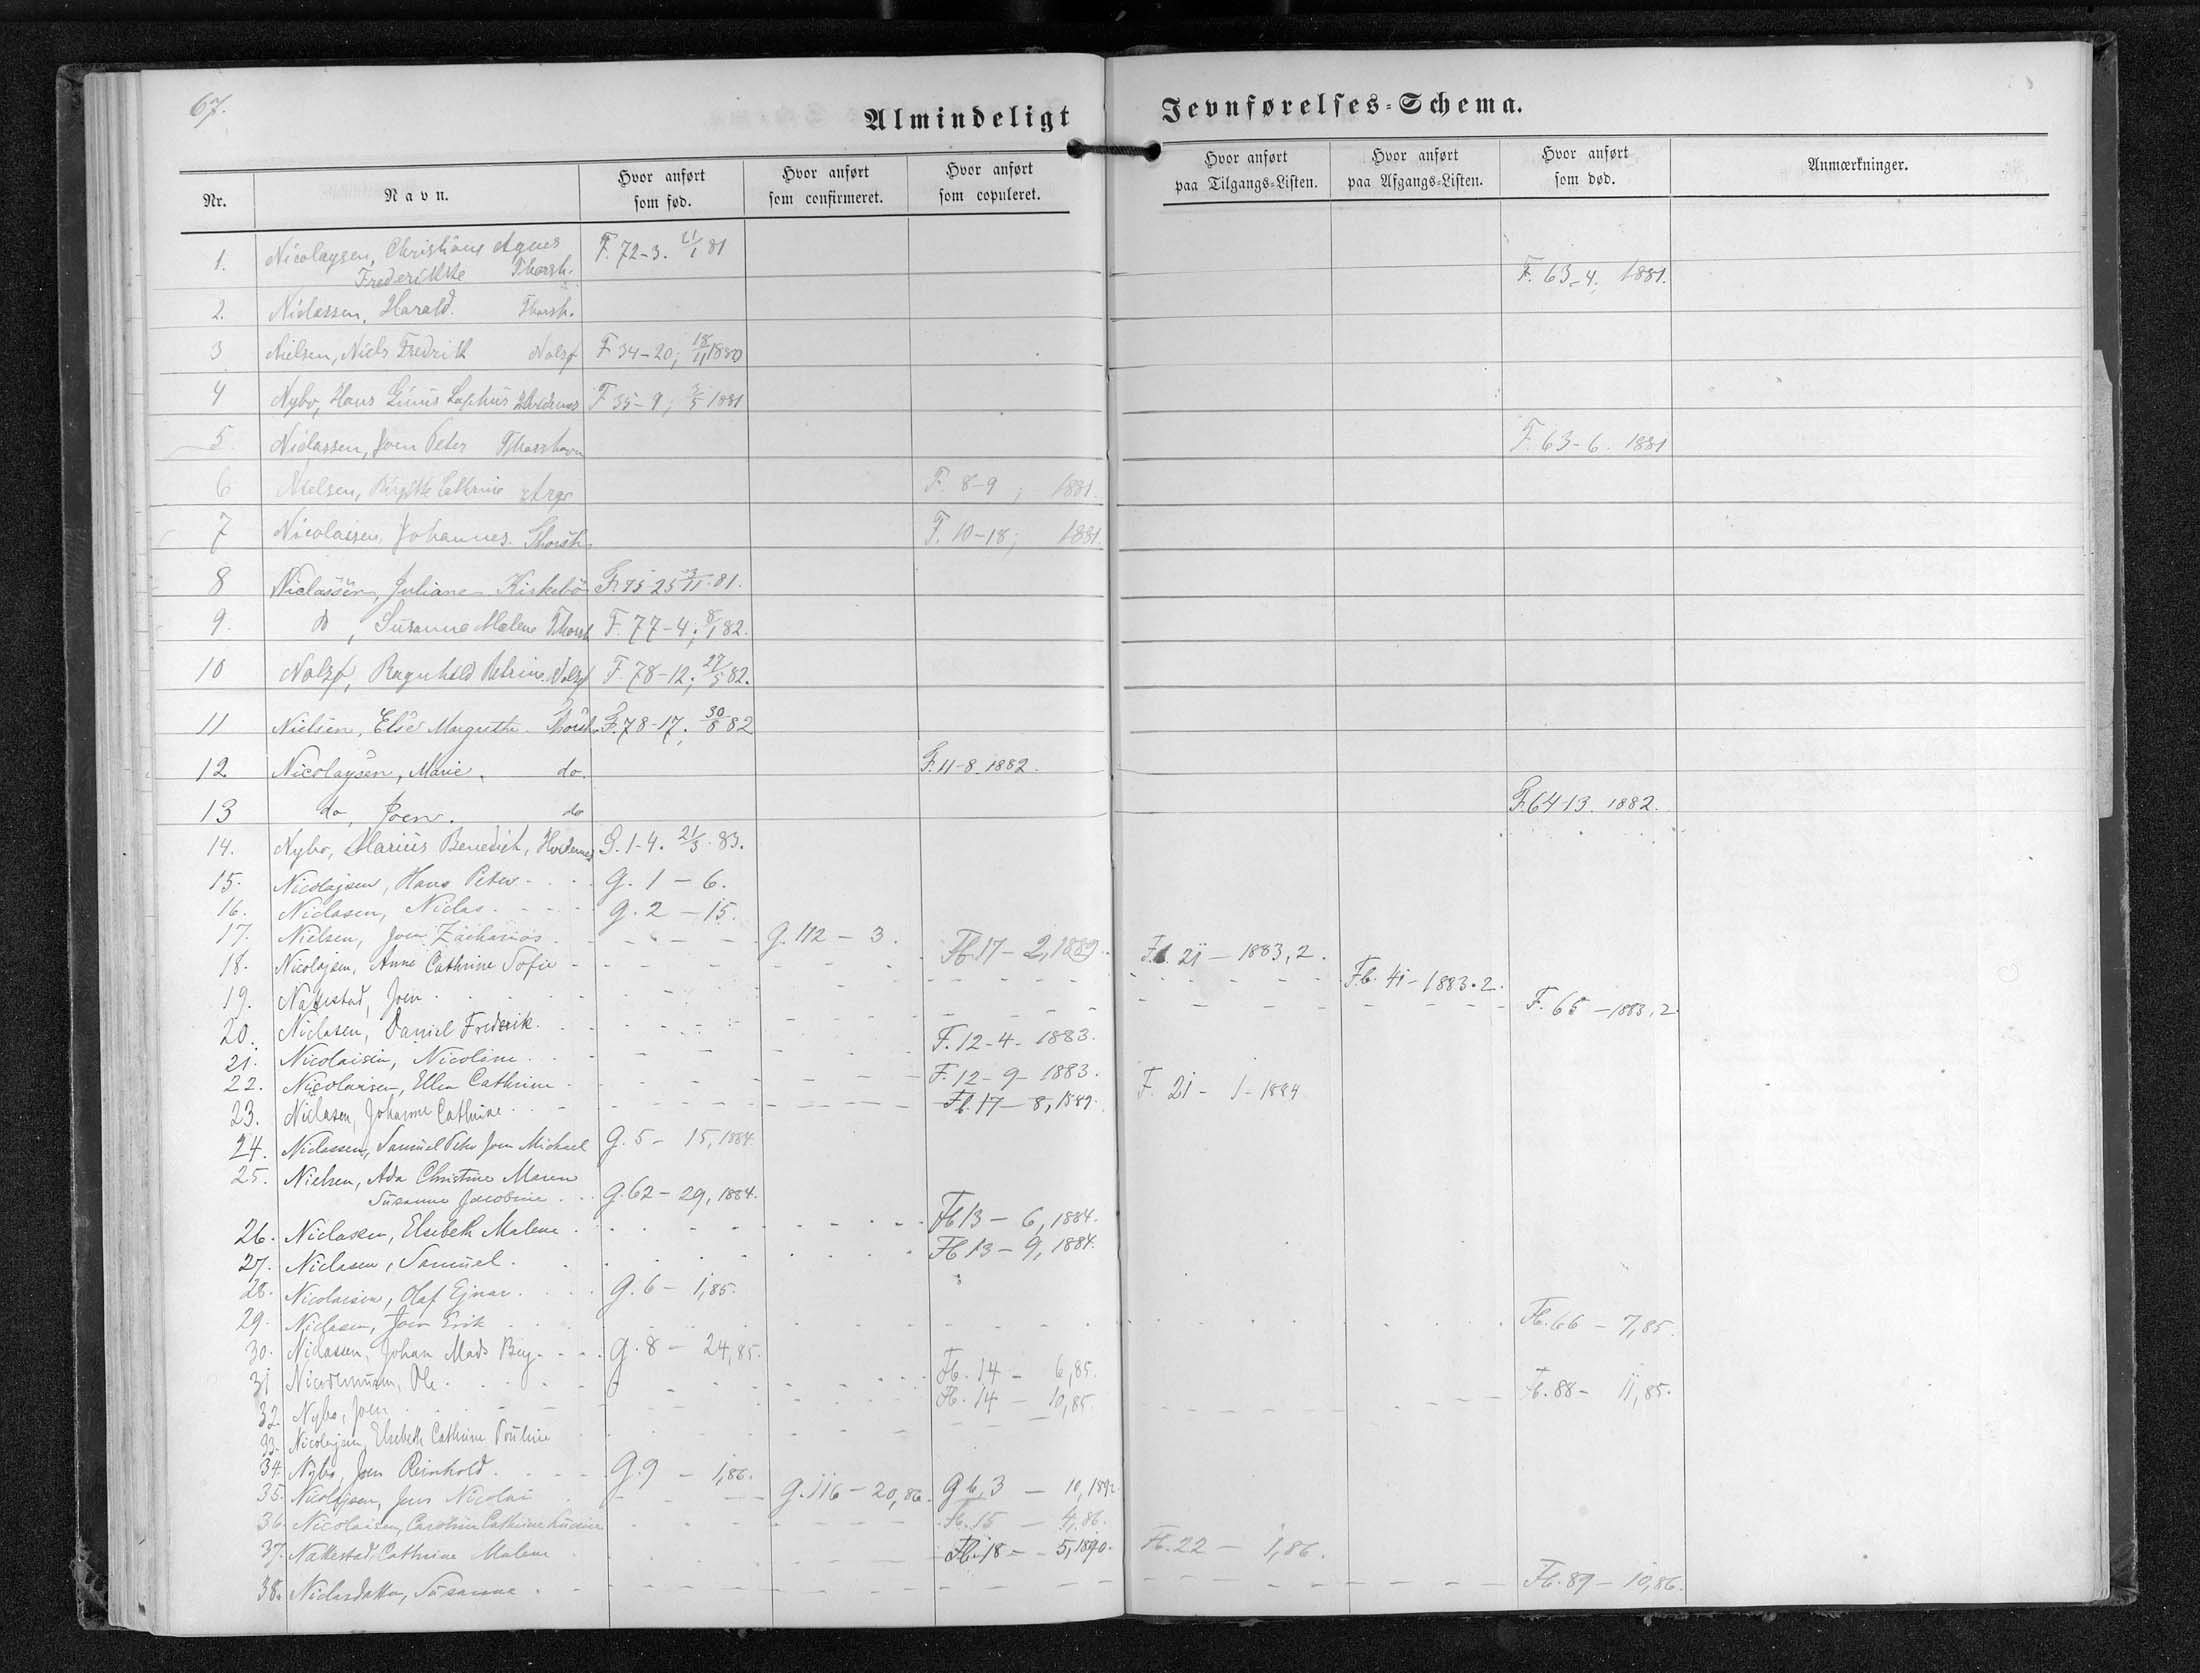 67.
Almindeligt Jevnførelses-Schema.
Nr. Navn. Hvor anført som fød. Hvor anført som confirmeret. Hvor anført som copuleret. Hvor anført paa Tilgangs-Listen. Hvor anført paa Afgangs-Listen. Hvor anført som død. Anmærkninger.
1. Nicolaysen, Christiane Agnes F. 72-3. 21/1 81
Frederikke Thorsh.
2. Niclassen, Harald. Thorsh. F. 63-4. 1881.
3 Nielsen, Niels Fredrik Nolsø F 34-20; 18/11 1880
4 Nybo, Hans Hvidenæs F 35-9; 3/5 1881
5 Niclassen, Joen Peter Thorshavn F. 63-6. 1881
6 Nielsen, Birgitte Cathrine Arge F. 8-9; 1881.
7 Nicolaisen, Johannes. Thorsh. F. 10-18; 1881.
8 Niclassen, Juliane Kirkebø F. 75-25 /11.81.
9. do, Susanne Malene Thorsh F. 77-4; 8/1 82.
10 Nolsø, Ragnhild Petrine. Nolsø F. 78-12; 27/5 82.
11 Nielsen, Else Margrethe Thorsh. F. 78-17. 30/8 82
12 Nicolaysen, Marie. do. F. 11-8. 1882.
13 do, Joen. do F. 64-13. 1882.
14. Nybo, Marius Benedict, Hvidenæs G. 1-4. 21/3.83.
15. Nicolajsen, Hans Peter G. 1-6.
16. Niclasen, Niclas G. 2-15.
17. Nielsen, Joen Zacharias G. 112-3. Fb. 17-2, 1889.
18. Nicolajsen, Anne Cathrine Sofie Fb. 21-1883, 2.
19. Nattestad, Joen Fb. 41-1883.2.
20. Niclasen, Daniel Frederik. F. 65-1883, 2.
21. Nicolaisen, Nicoline F. 12-4-1883.
22. Nicolaisen, Ellen Cathrine F. 12-9-1883.
23. Niclasen, Johanne Cathrine Fb. 17-8, 1889. F. 21-1-1884
24. Niclassen, Samuel Peter Joen Michael G. 5-15, 1884.
25. Nielsen, Ada Christine Maren
Susanne Jacobine G. 62-29, 1884.
26. Niclasen, Elsebeth Malene Fb 13-6, 1884.
27. Niclasen, Samuel. Fb 13-9, 1884.
28. Nicolaisen, Olaf Ejnar. G. 6-1, 85.
29. Niclasen, Joen Erik Fb. 66-7, 85.
30. Niclasen, Johan Mads G. 8-24, 85.
31 Ole. Fb. 14-6, 85.
32. Nybo, Joen Fb. 14-10, 85.
33. Nicolajsen, Elsebeth Cathrine Fb. 88-11, 85.
34. Nybo, Joen Reinhold. G. 9-1, 86.
35. Nicolajsen, Jens Nicolai G. 116-20, 86. G b, 3-10, 1892.
36. Nicolaisen, Caroline Cathrine Fb. 15-4, 86.
37. Nattestad, Cathrine Malene Fb. 18-5, 1890. Fb. 22-1, 86.
38. Niclasdatter, Susanna. Fb. 89-10, 86.